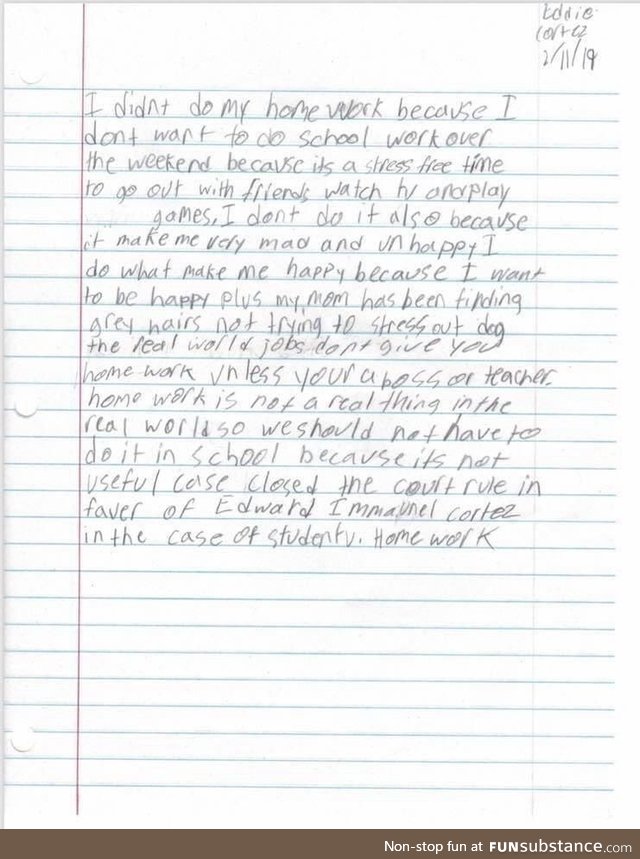 Eddie
Cortez
2/11/19
I didnt do my home work because I
dont want to do school work over
the weekend because its a stress free time
to go out with friends watch tv and play
games, I dont do it also because
it make me very mad and unhappy I
do what make me happy because I want
to be happy plus my mom has been finding
grey hairs not trying to stress out dog
the real world jobs dont give you
home work unless your a boss or teacher.
home work is not a real thing in the
real world so we should not have to
do it in school because its not
useful case closed the court rule in
faver of Edward Immaunel cortez
in the case of student v. Home work
Non-stop fun at FUNsubstance.com